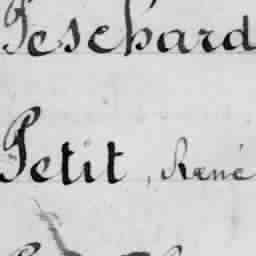 Peschard
Petit, René